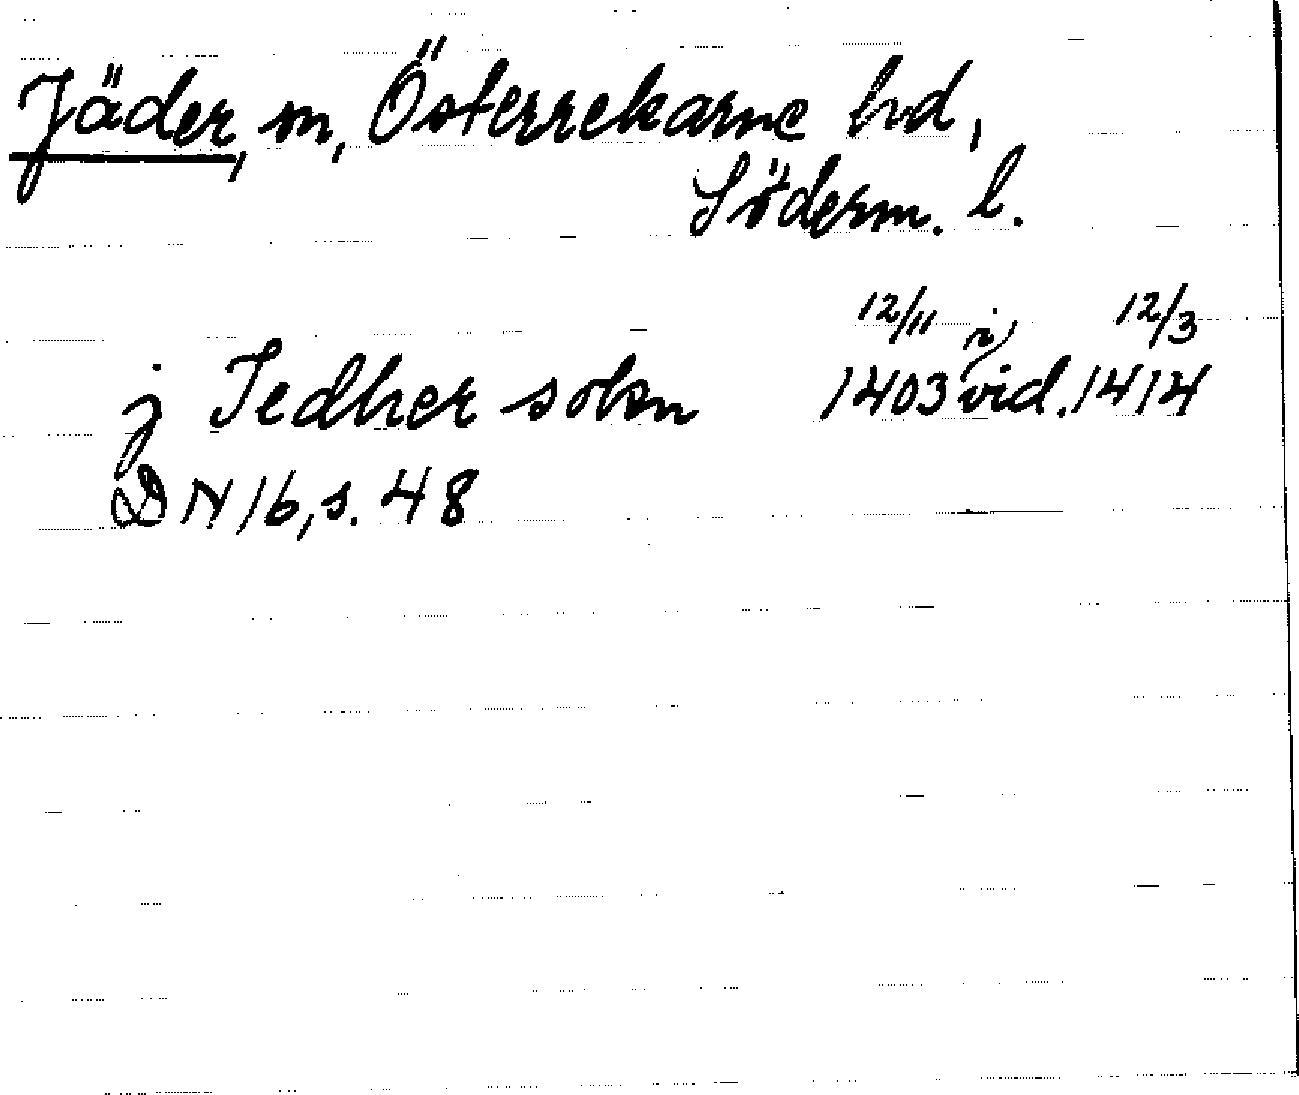 Jäder, sn, Österrekarne hd,
Söderm. l.
12/11 i 12/3
j Jedher sokn 1403 vid. 1414
DN 16, s. 48